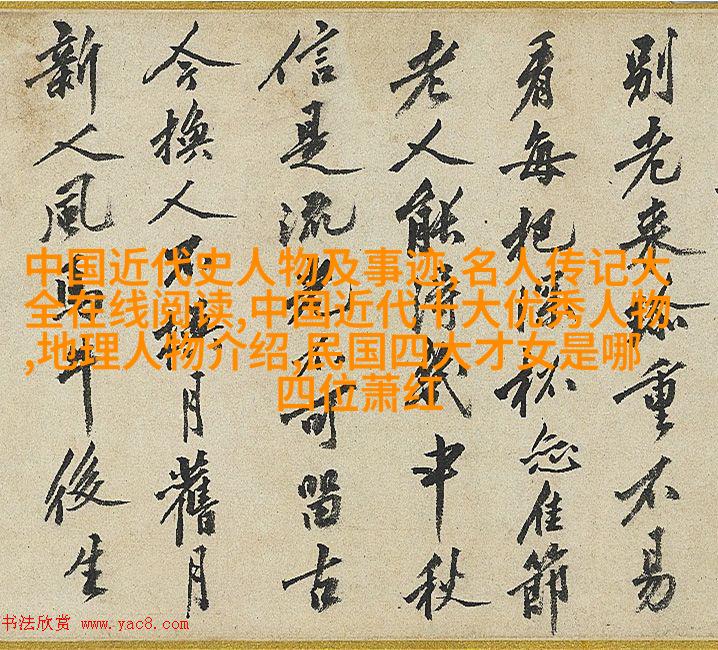 別老来重不易
看每把佳節
老人能得幾中秋
信是流光不可留古
今換人不換月舊月
新人風馬牛後生
中国近代史人物及事迹,名人传记大
全在线阅读,中国近代十大优秀人物
,地理人物介绍,民国四大才女是哪
四位萧红
书法欣赏 www.yac8.com